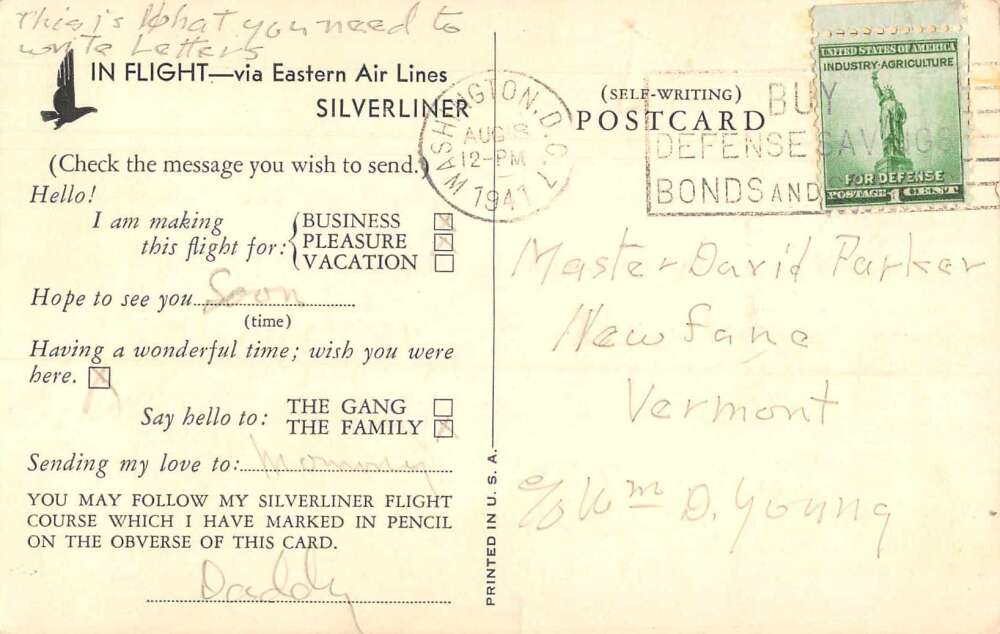 This is What you need to
write Letters
IN FLIGHT—via Eastern Air Lines
SILVERLINER
(Check the message you wish to send.)
Hello!
I am making
this flight for:
BUSINESS ☒
PLEASURE ☒
VACATION ☐
Hope to see you Soon
(time)
Having a wonderful time; wish you were
here. ☒
Say hello to: THE GANG ☐
THE FAMILY ☒
Sending my love to: Mommy
YOU MAY FOLLOW MY SILVERLINER FLIGHT
COURSE WHICH I HAVE MARKED IN PENCIL
ON THE OBVERSE OF THIS CARD.
Daddy
PRINTED IN U. S. A.
WASHINGTON, D.C. 7
AUG 8
12-PM
1941
(SELF-WRITING)
POSTCARD
BUY
DEFENSE SAVINGS
BONDS AND
UNITED STATES OF AMERICA
INDUSTRY·AGRICULTURE
FOR DEFENSE
POSTAGE 1 CENT
Master David Parker
Newfane
Vermont
c/o Wm D. Young